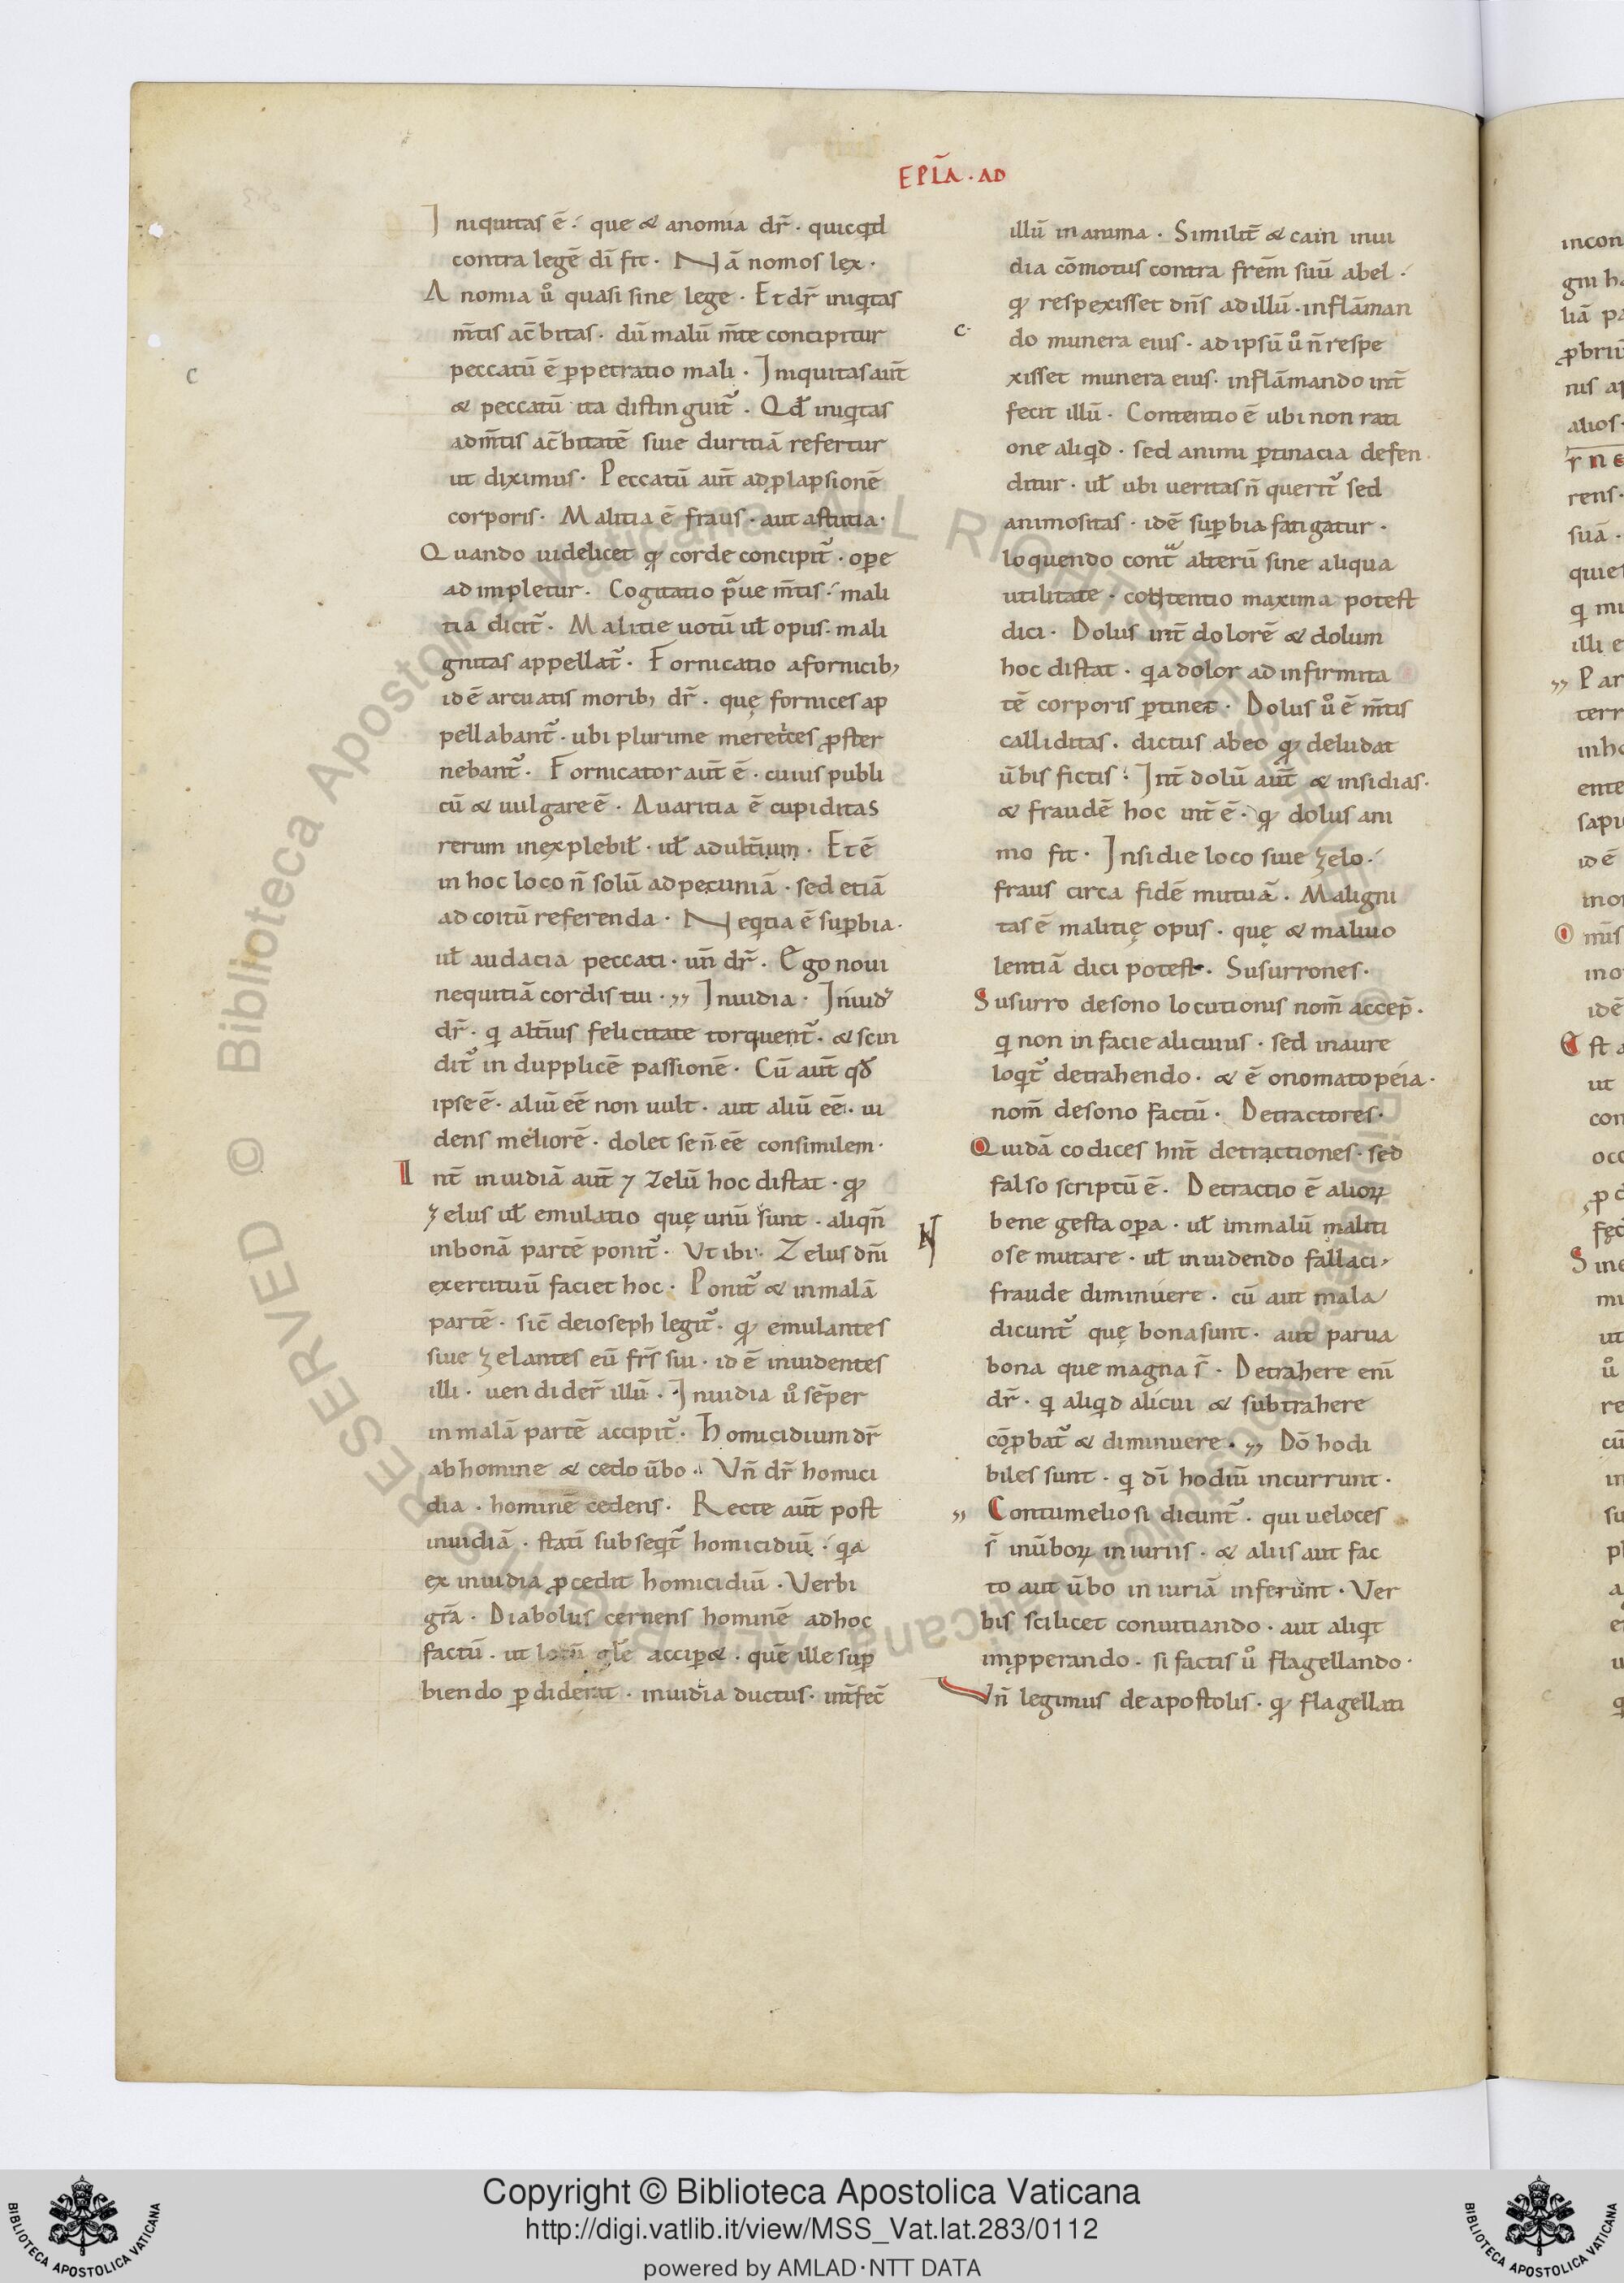 EPLA̅ · AD
Iniquitas ē · que & anomia dr̄ · quicq̇d
contra legē dī fit · Nā nomos lex ·
Anomia ů quasi sine lege · Et dr̄ iniq̇tas
m̄tis ac̄bitas · dū malū m̄te concipitur
peccatū ē ꝑpetratio mali · Iniquitas aut̄
& peccatū ita distinguit᷑ · Qđ iniq̇tas
ad m̄tis ac̄bitatē siue duritiā refertur
ut diximus · Peccatū aut̄ ad ꝓlapsionē
corporis · Malitia ē fraus · aut astutia ·
Quando uidelicet ꝙ corde concipit᷑ · oꝑe
adimpletur · Cogitatio p̄ue m̄tis · mali
tia dicit᷑ · Malitie uotū uł opus · mali
gnitas appellat᷑ · Fornicatio a fornicib;
id ē arcuatis morib; dr̄ · quę fornices ap
pellabant᷑ · ubi plurime meret̍ces ꝓster
nebant᷑ · Fornicator aut̄ ē · cuius publi
cū & uulgare ē · Auaritia ē cupiditas
rerum inexplebił · uł adult̄ium · Et ē
in hoc loco n̄ solū ad pecuniā · sed etiā
ad coitū referenda · Neq̇tia ē suꝑbia ·
uł audacia peccati · un̄ dr̄ · Ego noui
nequitiā cordis tui · ,, Inuidia · Inuid᷑
dr̄ · q̇ alt̄ius felicitate torquent᷑ · & scin
dit᷑ in dupplicē passionē · Cū aut̄ qđ
ipse ē · aliū eē non uult · aut aliū eē · ui
dens meliorē · dolet se n̄ eē consimilem ·
Int̄ inuidiā aut̄ ⁊ zelū hoc distat · ꝙ
zelus uł emulatio quę unū sunt · aliqn̄
in bonā partē ponit᷑ · Vt ibi · Zelus dn̄i
exercituū faciet hoc · Ponit᷑ & in malā
partē · sic̄ de ioseph legit᷑ · ꝙ emulantes
siue zelantes eū fr̄s sui · id ē inuidentes
illi · uendider̄ illū · Inuidia ů sēper
in malā partē accipit᷑ · Homicidium dr̄
ab homine & cedo ūbo · Vn̄ dr̄ homici
dia · hominē cedens · Recte aut̄ post
inuidiā · statī subseq̇t᷑ homicidiū · q̇a
ex inuidia ꝓcedit homicidiū · Verbi
gr̄a · Diabolus cernens hominē ad hoc
factū · ut locū gl̄e acciꝑ& · quē ille suꝑ
biendo ꝑdiderat · inuidia ductus · int̄fec̄
illū in anima · Similit̄ & cain inui
dia cōmotus contra frēm suū abel ·
ꝙ respexisset dn̄s ad illū · inflāman
C·
do munera eius · ad ipsū ů n̄ respe
xisset munera eius · inflāmando int̄
fecit illū · Contentio ē ubi non rati
one aliq̇d · sed animi ꝑtinacia defen
ditur · uł ubi ueritas n̄ querit᷑ sed
animositas · idē suꝑbia fatigatur ·
loquendo contᵃ alterū sine aliqua
utilitate · contentio maxima potest
dici · Dolus int̄ dolorē & dolum
hoc distat · q̇a dolor ad infirmita
tē corporis ꝑtinet · Dolus ů ē m̄tis
calliditas · dictus ab eo ꝙ deludat
ūbis fictis · Int̄ dolū aut̄ & insidias ·
& fraudē hoc int̄ ē · ꝙ dolus ani
mo fit · Insidie loco siue zelo ·
fraus circa fidē mutuā · Maligni
tas ē malitię opus · quę & maliuo
lentiā dici potest · Susurrones ·
Susurro de sono locutionis nom̄ accep̄ ·
q̇ non in facie alicuius · sed in aure
loq̇t᷑ detrahendo · & ē onomatopeia ·
nom̄ de sono factū · Detractores ·
Quidā codices hn̄t detractiones · sed
falso scriptū ē · Detractio ē alioꝝ
bene gesta oꝑa · uł in malū maliti
ose mutare · uł inuidendo fallaci
fraude diminuere · cū aut mala
dicunt᷑ quę bona sunt · aut parua
bona que magna s̄ · Detrahere enī
dr̄ · q̇ aliq̇d alicui & subtrahere
cōꝓbat᷑ & diminuere · ,, Dō hodi
biles sunt · q̇ dī hodiū incurrunt ·
,, Contumeliosi dicunt᷑ · qui ueloces
s̄ in ūboꝝ iniuriis · & aliis aut fac
to aut ūbo iniuriā inferunt · Ver
bis scilicet conuitiando · aut aliq̇t
imꝓperando · si factis ů flagellando ·
Vn̄ legimus de apostolis · ꝙ flagellati
Copyright © Biblioteca Apostolica Vaticana
http://digi.vatlib.it/view/MSS_Vat.lat.283/0112
powered by AMLAD·NTT DATA
BIBLIOTECA APOSTOLICA VATICANA
BIBLIOTECA APOSTOLICA VATICANA